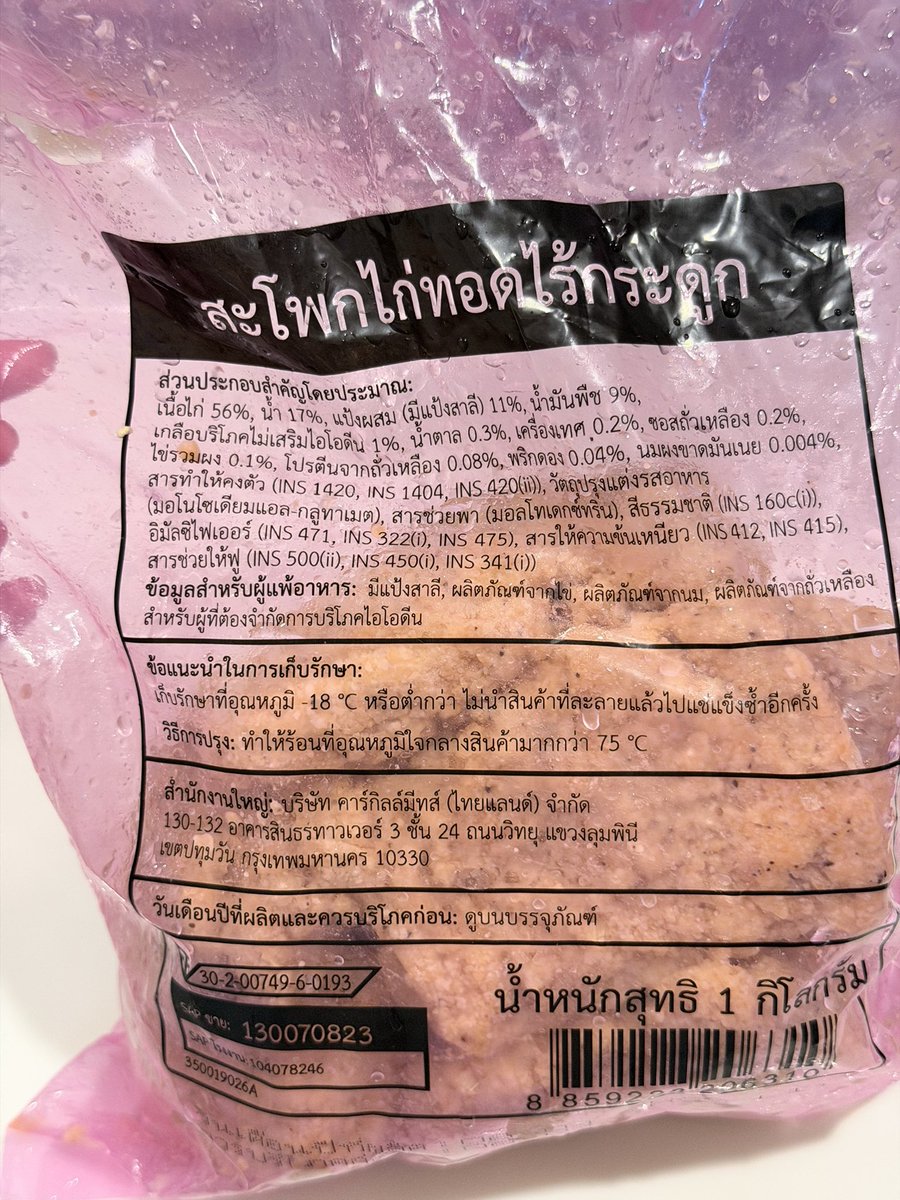 สะโพกไก่ทอดไร้กระดูก
ส่วนประกอบสำคัญโดยประมาณ:
เนื้อไก่ 56%, น้ำ 17%, แป้งผสม (มีแป้งสาลี) 11%, น้ำมันพืช 9%,
เกลือบริโภคไม่เสริมไอโอดีน 1%, น้ำตาล 0.3%, เครื่องเทศ 0.2%, ซอสถั่วเหลือง 0.2%,
ไข่รวมผง 0.1%, โปรตีนจากถั่วเหลือง 0.08%, พริกดอง 0.04%, นมผงขาดมันเนย 0.004%,
สารทำให้คงตัว (INS 1420, INS 1404, INS 420(ii)), วัตถุปรุงแต่งรสอาหาร
(มอโนโซเดียมแอล-กลูทาเมต), สารช่วยพา (มอลโทเดกซ์ทริน), สีธรรมชาติ (INS 160c(i)),
อิมัลซิไฟเออร์ (INS 471, INS 322(i), INS 475), สารให้ความข้นเหนียว (INS 412, INS 415),
สารช่วยให้ฟู (INS 500(ii), INS 450(i), INS 341(i))
ข้อมูลสำหรับผู้แพ้อาหาร: มีแป้งสาลี, ผลิตภัณฑ์จากไข่, ผลิตภัณฑ์จากนม, ผลิตภัณฑ์จากถั่วเหลือง
สำหรับผู้ที่ต้องจำกัดการบริโภคไอโอดีน
ข้อแนะนำในการเก็บรักษา:
เก็บรักษาที่อุณหภูมิ -18 °C หรือต่ำกว่า ไม่นำสินค้าที่ละลายแล้วไปแช่แข็งซ้ำอีกครั้ง
วิธีการปรุง: ทำให้ร้อนที่อุณหภูมิใจกลางสินค้ามากกว่า 75 °C
สำนักงานใหญ่: บริษัท คาร์กิลล์มีทส์ (ไทยแลนด์) จำกัด
130-132 อาคารสินธรทาวเวอร์ 3 ชั้น 24 ถนนวิทยุ แขวงลุมพินี
เขตปทุมวัน กรุงเทพมหานคร 10330
วันเดือนปีที่ผลิตและควรบริโภคก่อน: ดูบนบรรจุภัณฑ์
30-2-00749-6-0193
น้ำหนักสุทธิ 1 กิโลกรัม
SAP ขาย: 130070823
SAP โรงงาน: 104078246
350019026A
8 859223